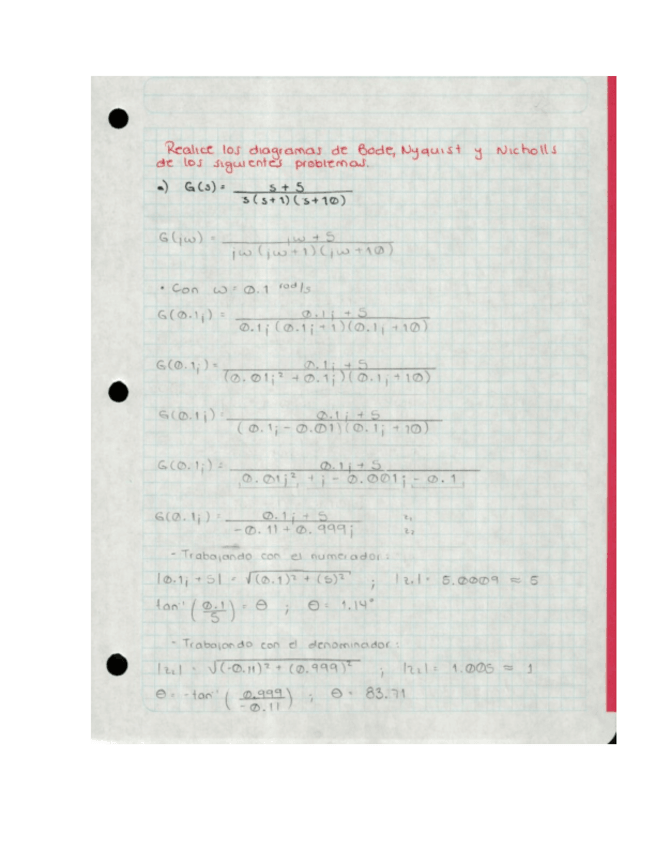 Realice los diagramas de Bode, Nyquist y Nicholls
de los siguientes problemas.
a) G(s) = s + 5 / s(s+1)(s+10)
G(jω) = jω + 5 / jω(jω+1)(jω+10)
• Con ω = 0.1 rad/s
G(0.1j) = 0.1j + 5 / 0.1j(0.1j+1)(0.1j+10)
G(0.1j) = 0.1j + 5 / (0.01j² + 0.1j)(0.1j+10)
G(0.1j) = 0.1j + 5 / (0.1j - 0.01)(0.1j + 10)
G(0.1j) = 0.1j + 5 / 0.01j² + j - 0.001j - 0.1
G(0.1j) = 0.1j + 5 / -0.11 + 0.999j z₁ z₂
- Trabajando con el numerador:
|0.1j + 5| = √(0.1)² + (5)² ; |z₁| = 5.0009 ≈ 5
tan⁻¹ (0.1/5) = θ ; θ = 1.14°
- Trabajando con el denominador:
|z₂| = √(-0.11)² + (0.999)² ; |z₂| = 1.005 ≈ 1
θ = -tan⁻¹ (0.999/-0.11) ; θ = 83.71